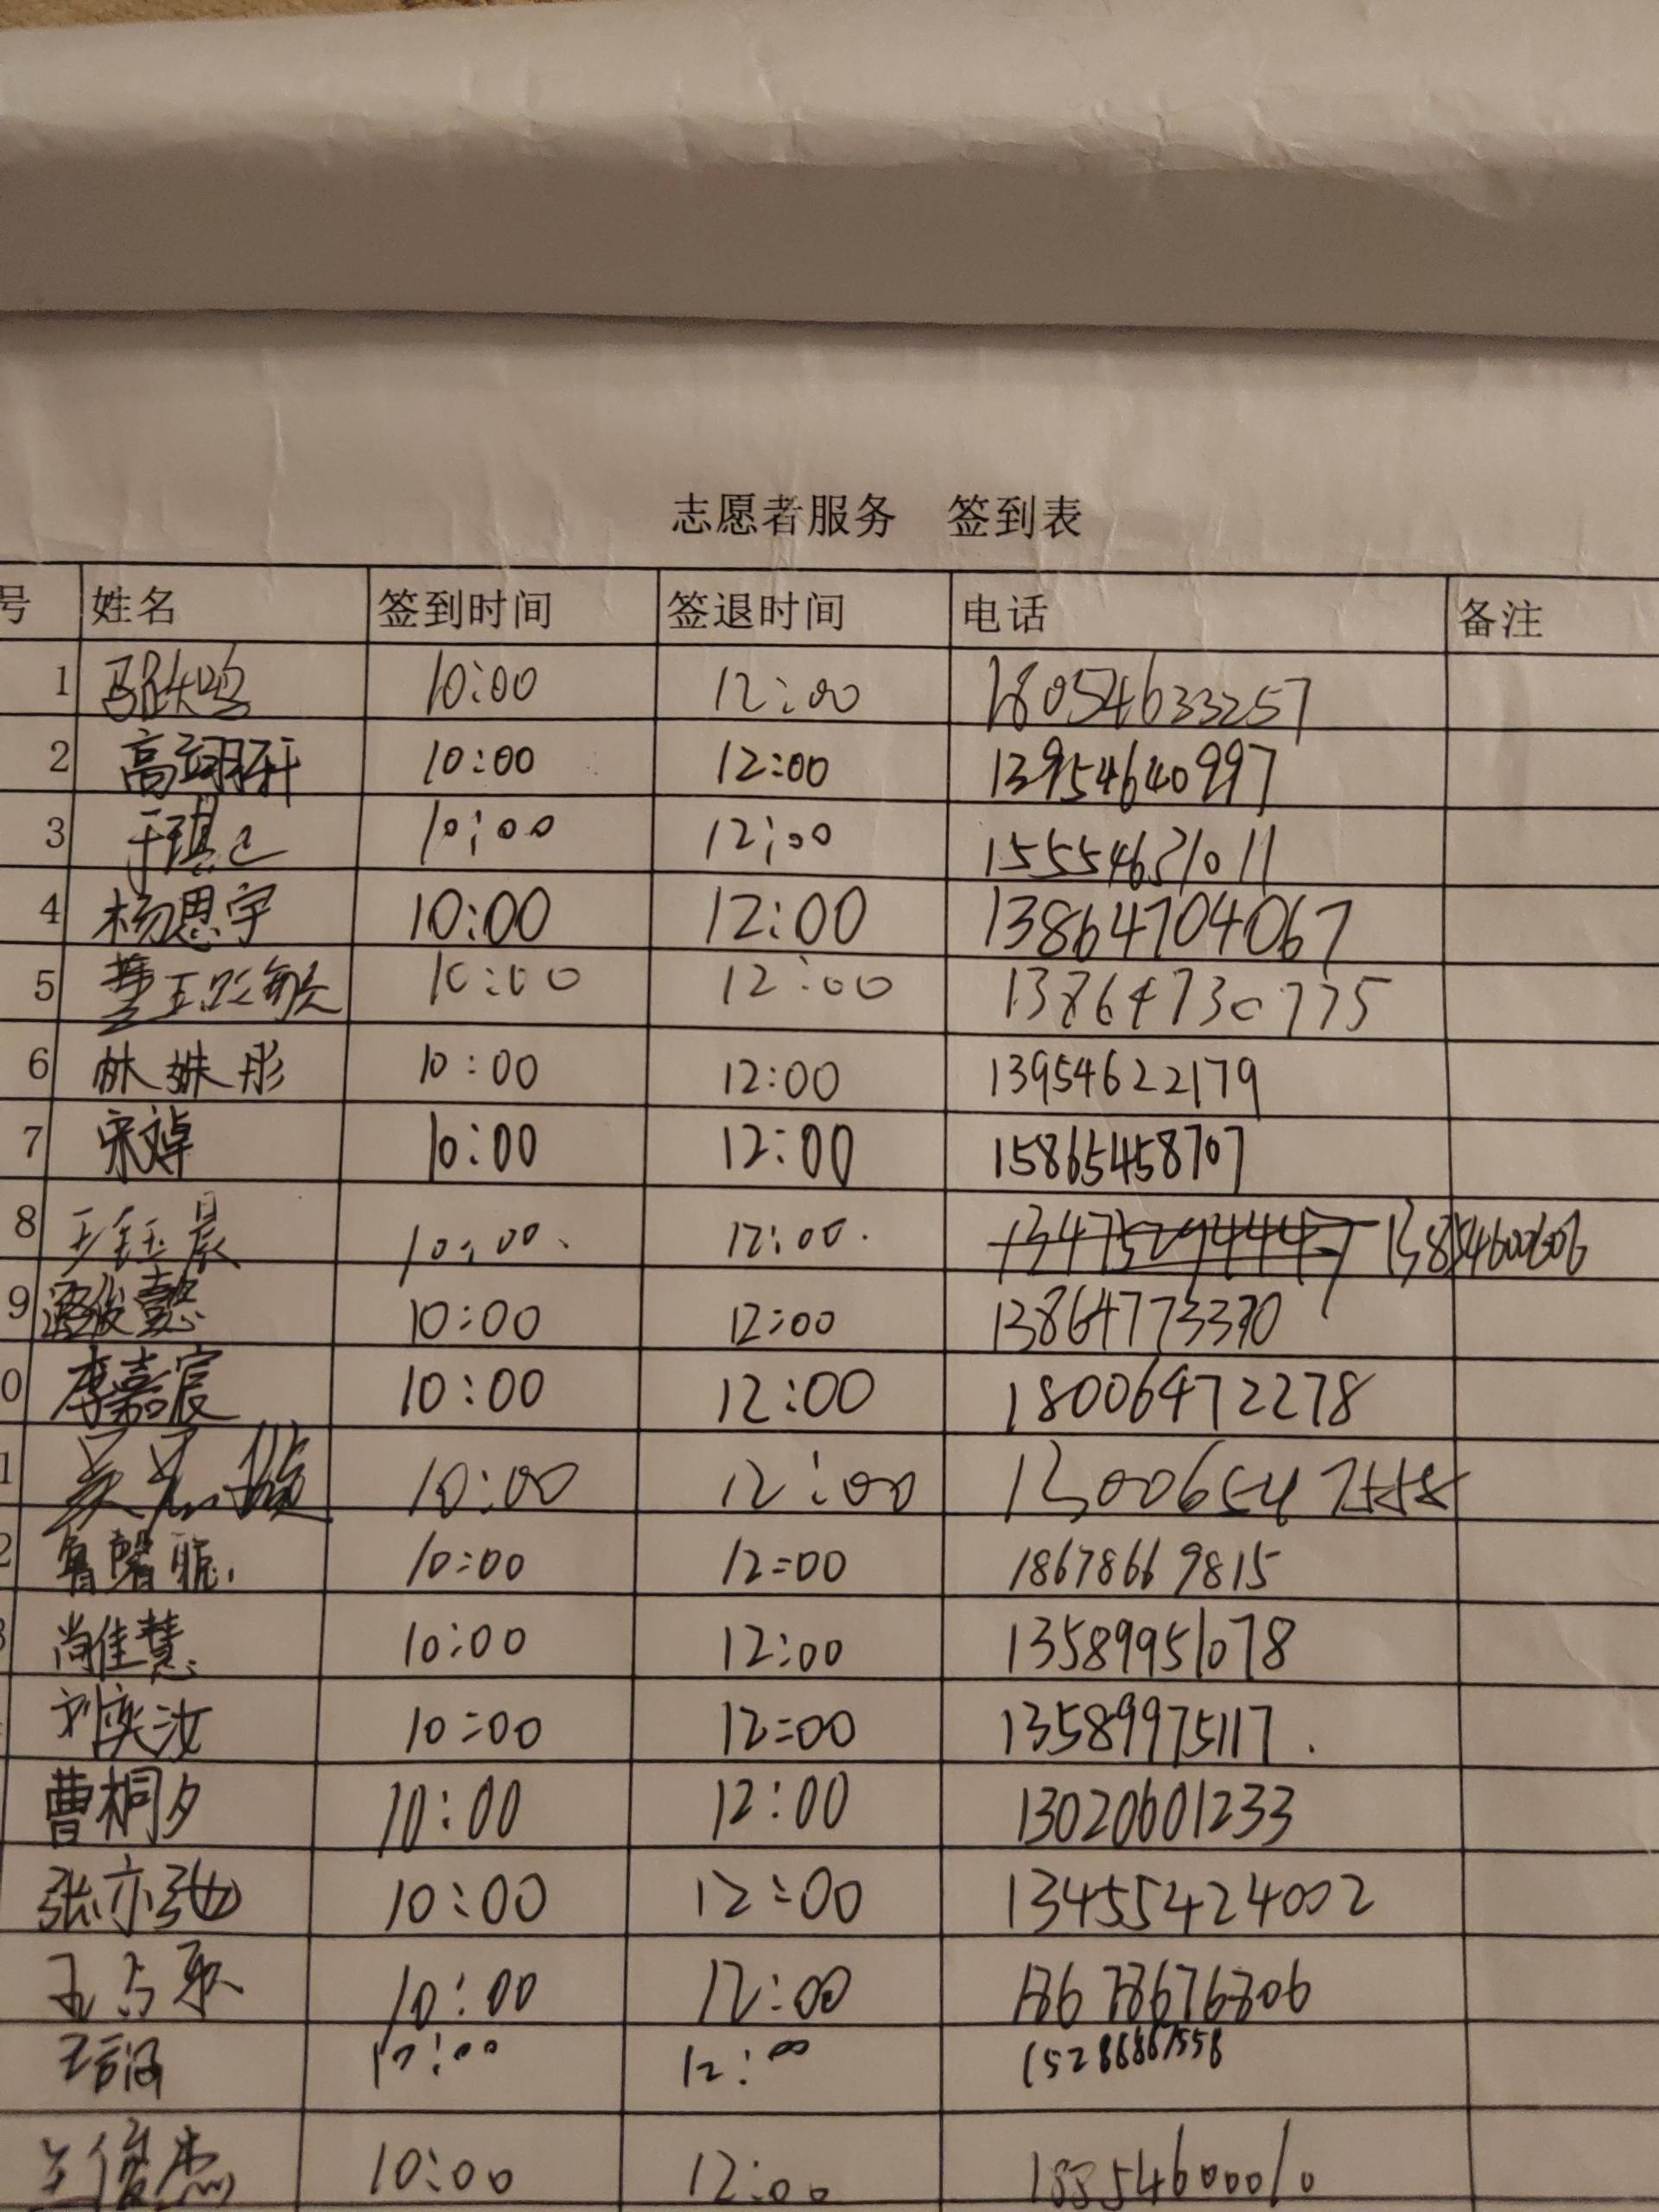 志愿者服务 签到表
号 姓名 签到时间 签退时间 电话 备注
1 10:00 12:00 18054633257
2 高翊轩 10:00 12:00 13954640997
3 于琪 10:00 12:00
4 杨思宇 10:00 12:00 13864704067
5 10:00 12:00 13864730775
6 林姝彤 10:00 12:00 13954622179
7 宋焯 10:00 12:00 15865458707
8 王钰晨 10:00 12:00
9 懿 10:00 12:00
0 李嘉宸 10:00 12:00 18006472278
1 10:00 12:00
2 鲁 10:00 12:00 18678669815
尚佳慧 10:00 12:00 13589951078
刘奕汝 10:00 12:00 13589975117.
曹桐夕 10:00 12:00 13020601233
张亦弛 10:00 12:00 13455424002
10:00 12:00 18678676806
10:00 12:00 15286867558
兰俊杰 10:00 12:00